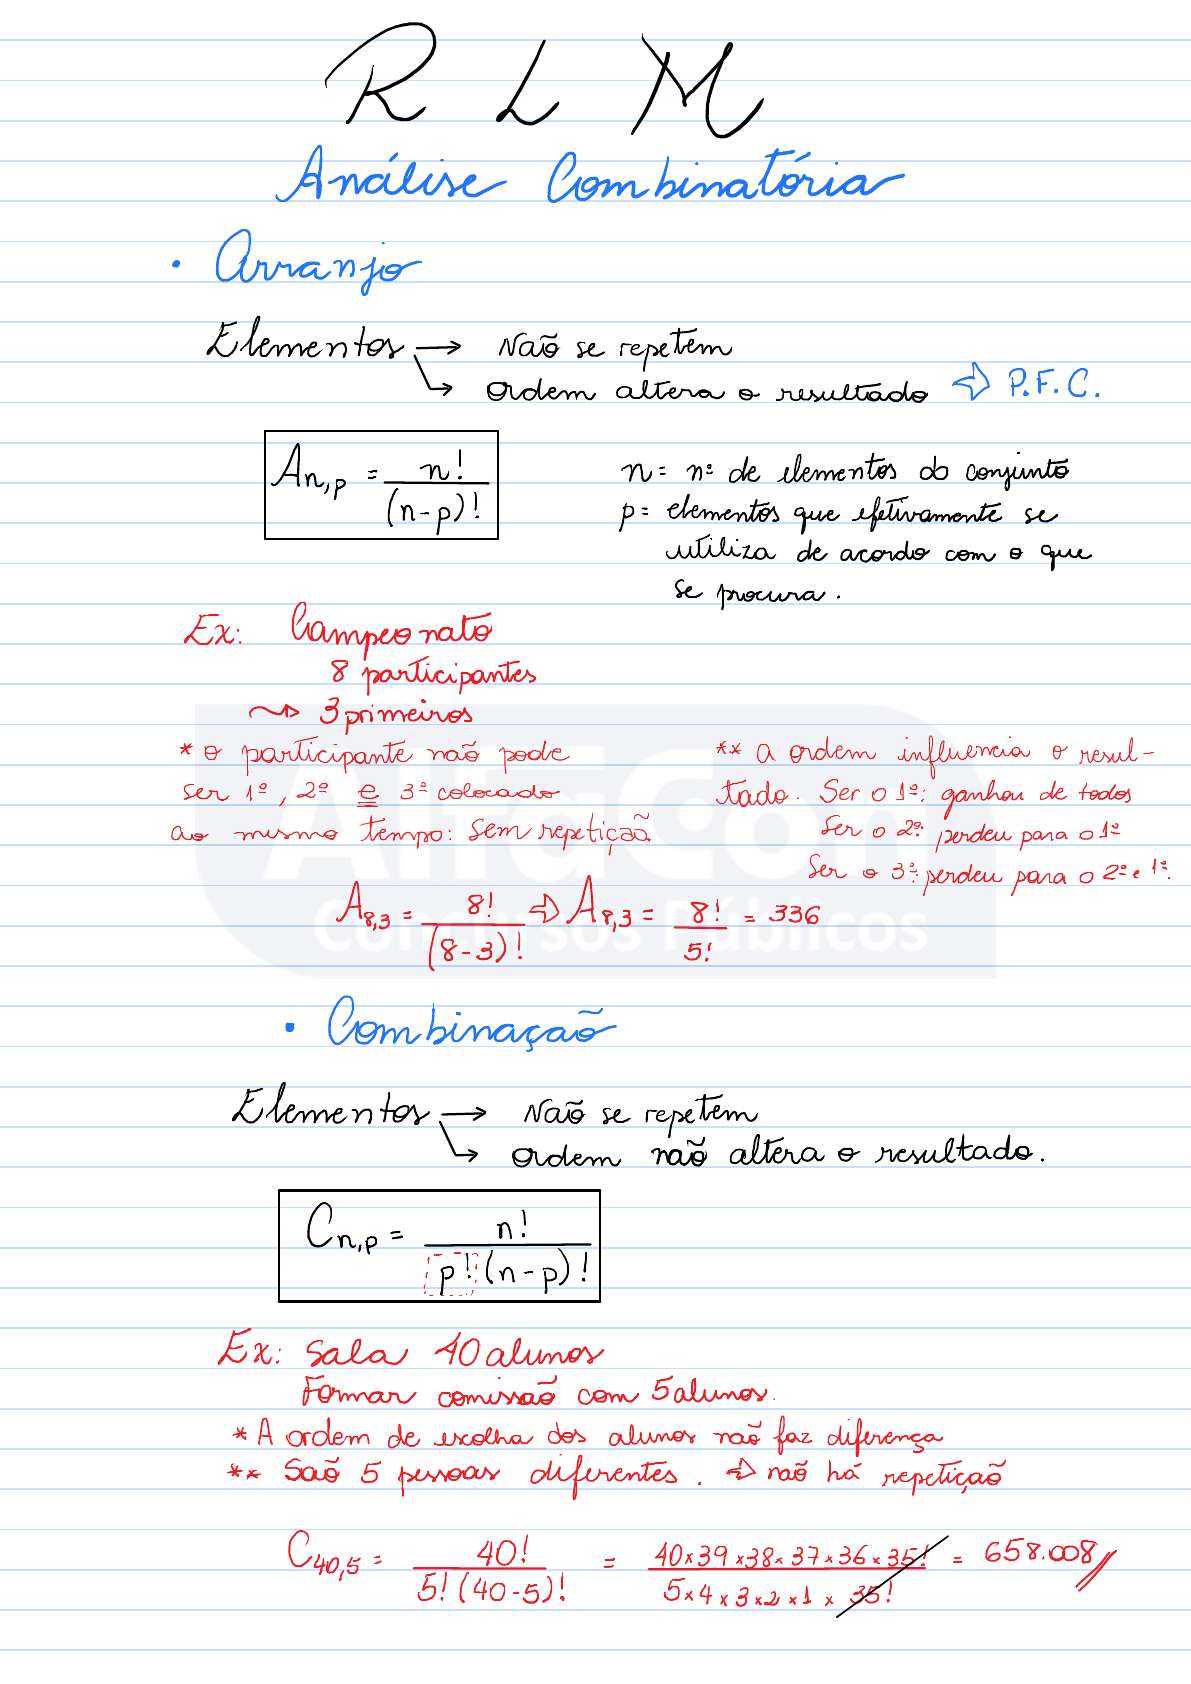 R L M
Análise Combinatória
• Arranjo
Elementos → Não se repetem
↳ ordem altera o resultado ⇨ P.F.C.
An,p = n! / (n-p)!
n = nº de elementos do conjunto
p = elementos que efetivamente se
utiliza de acordo com o que
se procura.
Ex: Campeonato
8 participantes
↝ 3 primeiros
* o participante não pode
ser 1º, 2º e 3º colocado
ao mesmo tempo: sem repetição
** a ordem influencia o resul-
tado. Ser o 1º: ganhou de todos
Ser o 2º: perdeu para o 1º
Ser o 3º: perdeu para o 2º e 1º.
A8,3 = 8! / (8-3)! ⇨ A8,3 = 8! / 5! = 336
AlfaCon
Concursos Públicos
• Combinação
Elementos → Não se repetem
↳ ordem não altera o resultado.
Cn,p = n! / p!(n-p)!
Ex: Sala 40 alunos
Formar comissão com 5 alunos.
* A ordem de escolha dos alunos não faz diferença
** São 5 pessoas diferentes. ⇨ não há repetição
C40,5 = 40! / 5!(40-5)! = 40x39x38x37x36x35! / 5x4x3x2x1x35! = 658.008